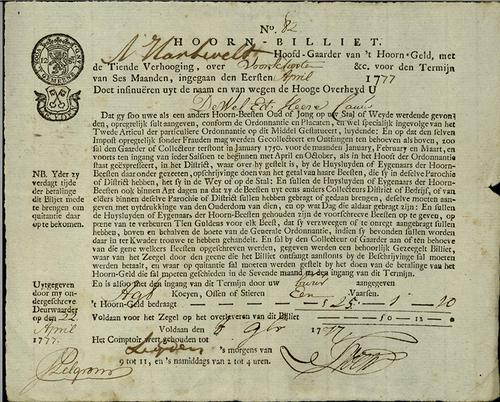 No. 82
HOORN-BILLIET.
Hoofd-Gaarder van 't Hoorn-Geld, met
de Tiende Verhooging, over Voorschoten &c. voor den Termijn
van Ses Maanden, ingegaan den Eersten April 1777
Doet insinuëren uyt de naam en van wegen de Hooge Overheyd U
De Wel Ed. Heere
Dat gy soo uw als een anders Hoorn-Beesten Oud of Jong op de Stal of Weyde werdende gevonden,
opregtelijk sult aangeven, conform de Ordonnantie en Placaten, en wel specialijk ingevolge van
het Twede Articul der particuliere Ordonnantie op dit Middel Gestatueert, luydende: En op dat den selven
Impost opregtelijk sonder Frauden mag werden Gecollecteert en Ontfangen ten behooven als boven, zoo
sal den Gaarder of Collecteur terstont in January 1750. voor de maanden January, February en Maart, en
voorts ten ingang van ieder Saisoen te beginnen met April en October, als in het Hooft der Ordonnantie
staat gespecifieert, in het District, waar over hy gestelt is, op de Huysluyden of Eygenaars der Hoorn-
Beesten daar onder gezeten, opschrijvinge doen van het getal haare Beesten, die sy in deselve Parochie
of District hebben, het sy in de Wey of op de Stal: En sullen de Huysluyden of Eygenaars der Hoorn-
Beesten ook binnen Agt dagen na dat zy de Beesten uyt eens anders Collecteurs District of Bedrijf, of van
elders binnen deselve Parochie of District sullen hebben gebragt of gedaan brengen, deselve moeten aan-
geven met uytdrukkinge van den Ouderdom van dien, en op wat Dag die aldaar gebragt zijn: En sullen
de Huysluyden of Eygenaars der Hoorn-Beesten gehouden zijn de voorschreeve Beesten op te geven, op
pœne van te verbeuren Tien Guldens voor elk Beest, dat sy verswegen of te onregt aangebragt sullen
hebben, boven en behalven de boete van de Generale Ordonnantie, indien sy bevonden sullen worden
daar in ter Kwader trouwe te hebben gehandelt. En sal by den Collecteur of Gaarder aan of ten behoeve
van die gene welkers Beesten opgeschreven werden, gegeven werden een behoorlijk Gezegelt Billiet,
waar van het Zegel door den geene die het Billiet ontfangt aanstonts by de Beschrijvinge sal moeten
werden betaalt, en waar op quitantie sal moeten werden gestelt by het doen van de betalinge van het
Hoorn-Geld die sal moeten geschieden in de Sevende maand na den ingang van dit Termijn.
NB. Yder zy
verdagt tijdig
der betalinge
dit Billiet mede
te brengen om
quitantie daar
op te bekomen.
En is alsoo met den ingang van dit Termijn door uw aangegeven
Koeyen, Ossen of Stieren Een Vaarsen.
't Hoorn-Geld bedraagt
Voldaan voor het Zegel op het overleveren van dit Billiet
Voldaan den
Het Comptoir wert gehouden tot Leyden 's morgens van
9 tot 11, en 's namiddags van 2 tot 4 uren.
Uytgegeven
door my on-
dergeschreve
Deurwaarder
op den 22
April
1777.